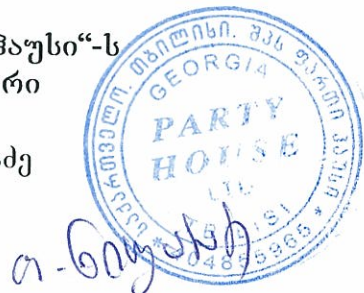 ჰაუსი“-ს
რი
ძე
საქართველო. თბილისი. შპს ფართი ჰაუსი
GEORGIA
PARTY
HOUSE
LTD
TBILISI